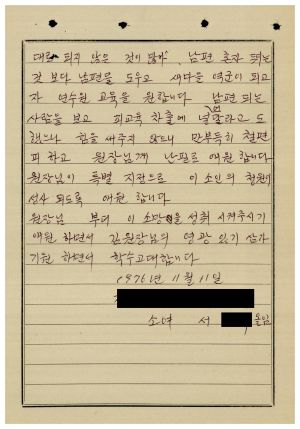 대로 되지 않은 것이 많아, 남편 혼자 뛰는
것 보다 남편를 도우고 새마을 역군이 되고
자 연수원 교육을 원합니다 남편 되는
사람을 보고 피교육 차출에 넣 달라고 도
했으나 힘을 써주지 않으니 만부득히 철면
피 하고 원장님께 난필로 애원 합니다
원장님이 특별 지원으로 이 소인의 청원이
성사 되도록 애원 합니다
원장님 부디 이 소망을 성취 시켜주시기
애원 하면서 김원장님의 영광 있기 삼가
기원 하면서 학수고대합니다
1976년 11월 11일
소녀 서 올림